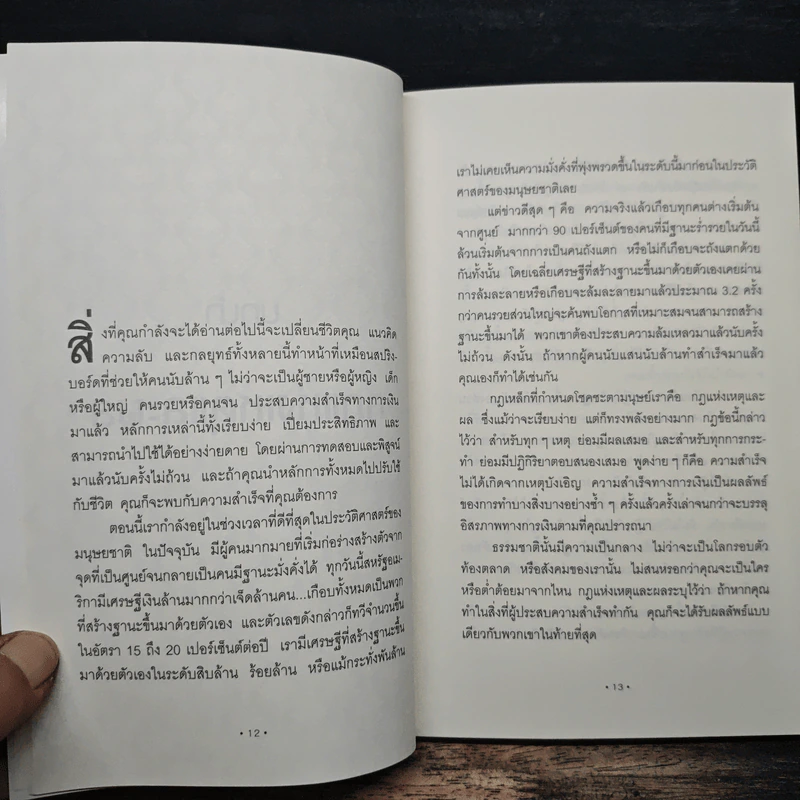 สิ่งที่คุณกำลังจะได้อ่านต่อไปนี้จะเปลี่ยนชีวิตคุณ แนวคิด
ความลับ และกลยุทธ์ทั้งหลายนี้ทำหน้าที่เหมือนสปริง-
บอร์ดที่ช่วยให้คนนับล้าน ๆ ไม่ว่าจะเป็นผู้ชายหรือผู้หญิง เด็ก
หรือผู้ใหญ่ คนรวยหรือคนจน ประสบความสำเร็จทางการเงิน
มาแล้ว หลักการเหล่านี้ทั้งเรียบง่าย เปี่ยมประสิทธิภาพ และ
สามารถนำไปใช้ได้อย่างง่ายดาย โดยผ่านการทดสอบและพิสูจน์
มาแล้วนับครั้งไม่ถ้วน และถ้าคุณนำหลักการทั้งหมดไปปรับใช้
กับชีวิต คุณก็จะพบกับความสำเร็จที่คุณต้องการ
ตอนนี้เรากำลังอยู่ในช่วงเวลาที่ดีที่สุดในประวัติศาสตร์ของ
มนุษยชาติ ในปัจจุบัน มีผู้คนมากมายที่เริ่มก่อร่างสร้างตัวจาก
จุดที่เป็นศูนย์จนกลายเป็นคนมีฐานะมั่งคั่งได้ ทุกวันนี้สหรัฐอเม-
ริกามีเศรษฐีเงินล้านมากกว่าเจ็ดล้านคน...เกือบทั้งหมดเป็นพวก
ที่สร้างฐานะขึ้นมาด้วยตัวเอง และตัวเลขดังกล่าวก็ทวีจำนวนขึ้น
ในอัตรา 15 ถึง 20 เปอร์เซ็นต์ต่อปี เรามีเศรษฐีที่สร้างฐานะขึ้น
มาด้วยตัวเองในระดับสิบล้าน ร้อยล้าน หรือแม้กระทั่งพันล้าน
• 12 •
เราไม่เคยเห็นความมั่งคั่งที่พุ่งพรวดขึ้นในระดับนี้มาก่อนในประวัติ
ศาสตร์ของมนุษยชาติเลย
แต่ข่าวดีสุด ๆ คือ ความจริงแล้วเกือบทุกคนต่างเริ่มต้น
จากศูนย์ มากกว่า 90 เปอร์เซ็นต์ของคนที่มีฐานะร่ำรวยในวันนี้
ล้วนเริ่มต้นจากการเป็นคนถังแตก หรือไม่ก็เกือบจะถังแตกด้วย
กันทั้งนั้น โดยเฉลี่ยเศรษฐีที่สร้างฐานะขึ้นมาด้วยตัวเองเคยผ่าน
การล้มละลายหรือเกือบจะล้มละลายมาแล้วประมาณ 3.2 ครั้ง
กว่าคนรวยส่วนใหญ่จะค้นพบโอกาสที่เหมาะสมจนสามารถสร้าง
ฐานะขึ้นมาได้ พวกเขาต้องประสบความล้มเหลวมาแล้วนับครั้ง
ไม่ถ้วน ดังนั้น ถ้าหากผู้คนนับแสนนับล้านทำสำเร็จมาแล้ว
คุณเองก็ทำได้เช่นกัน
กฎเหล็กที่กำหนดโชคชะตามนุษย์เราคือ กฎแห่งเหตุและ
ผล ซึ่งแม้ว่าจะเรียบง่าย แต่ก็ทรงพลังอย่างมาก กฎข้อนี้กล่าว
ไว้ว่า สำหรับทุก ๆ เหตุ ย่อมมีผลเสมอ และสำหรับทุกการกระ-
ทำ ย่อมมีปฏิกิริยาตอบสนองเสมอ พูดง่าย ๆ ก็คือ ความสำเร็จ
ไม่ได้เกิดจากเหตุบังเอิญ ความสำเร็จทางการเงินเป็นผลลัพธ์
ของการทำบางสิ่งบางอย่างซ้ำ ๆ ครั้งแล้วครั้งเล่าจนกว่าจะบรรลุ
อิสรภาพทางการเงินตามที่คุณปรารถนา
ธรรมชาตินั้นมีความเป็นกลาง ไม่ว่าจะเป็นโลกรอบตัว
ท้องตลาด หรือสังคมของเรานั้น ไม่สนหรอกว่าคุณจะเป็นใคร
หรือต่ำต้อยมาจากไหน กฎแห่งเหตุและผลระบุไว้ว่า ถ้าหากคุณ
ทำในสิ่งที่ผู้ประสบความสำเร็จทำกัน คุณก็จะได้รับผลลัพธ์แบบ
เดียวกับพวกเขาในท้ายที่สุด
• 13 •